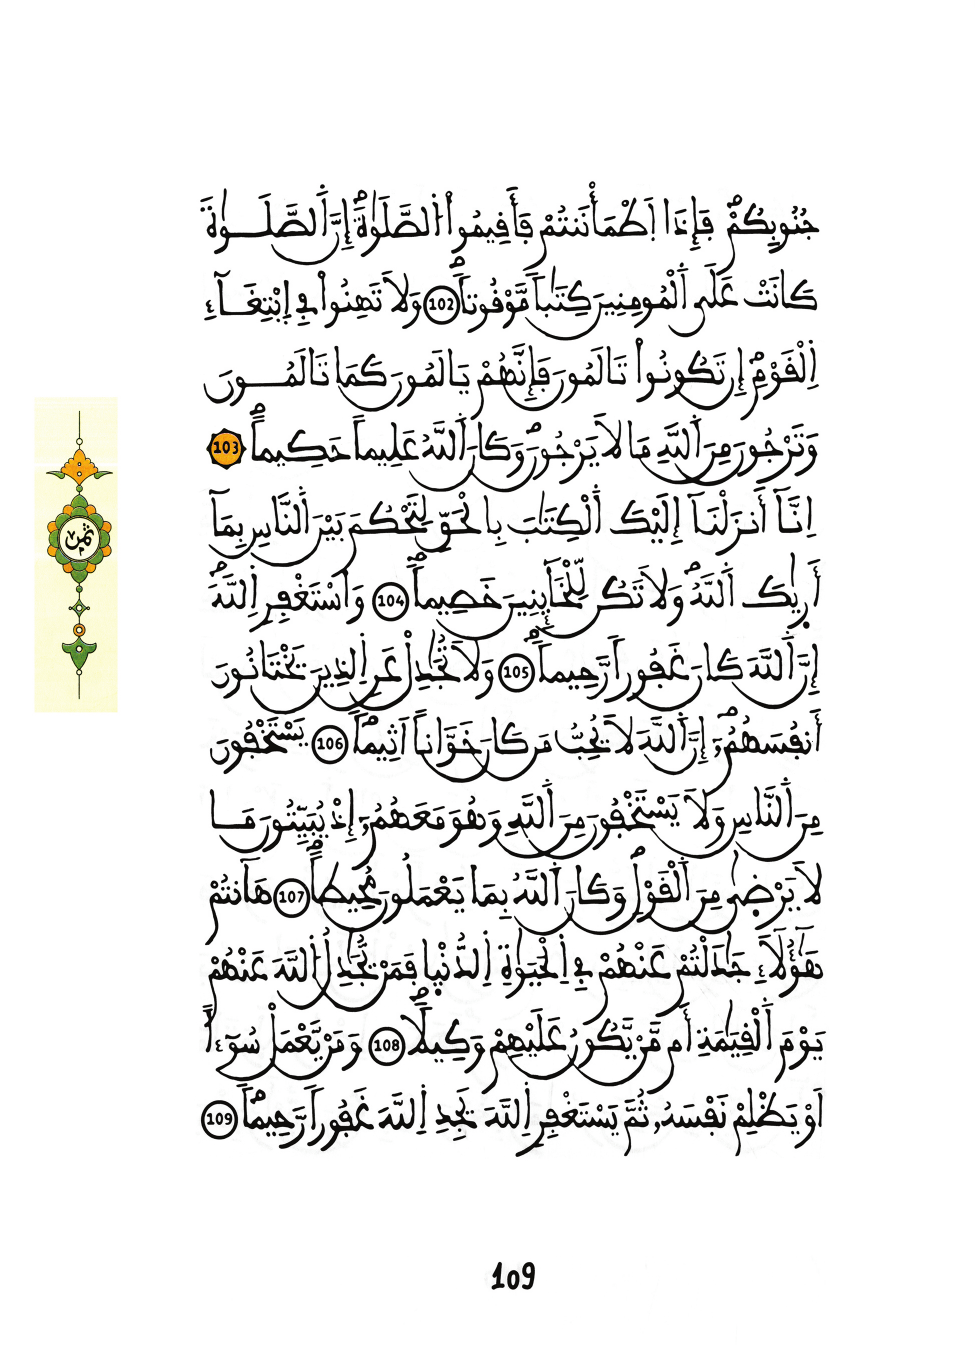 جُنُوبِكُمْ فَإِذَا اَطْمَأْنَنتُمْ فَأَقِيمُوا اُ۬لصَّلَوٰةَ إِنَّ اَ۬لصَّلَوٰةَ
كَانَتْ عَلَى اَ۬لْمُومِنِينَ كِتَٰباً مَّوْقُوتاً 102 وَلَا تَهِنُواْ فِے اِ۪بْتِغَآءِ
اِ۬لْقَوْمِ إِن تَكُونُواْ تَالَمُونَ فَإِنَّهُمْ يَالَمُونَ كَمَا تَالَمُونَ
وَتَرْجُونَ مِنَ اَ۬للَّهِ مَا لَا يَرْجُونَ وَكَانَ اَ۬للَّهُ عَلِيماً حَكِيماً 103
اِنَّآ أَنزَلْنَآ إِلَيْكَ اَ۬لْكِتَٰبَ بِالْحَقِّ لِتَحْكُمَ بَيْنَ اَ۬لنَّاسِ بِمَآ
أَر۪ىٰكَ اَ۬للَّهُ وَلَا تَكُن لِّلْخَآئِنِينَ خَصِيماً 104 وَاسْتَغْفِرِ اِ۬للَّهَ
إِنَّ اَ۬للَّهَ كَانَ غَفُوراً رَّحِيماً 105 وَلَا تُجَٰدِلْ عَنِ اِ۬لذِينَ يَخْتَانُونَ
أَنفُسَهُمُۥٓ إِنَّ اَ۬للَّهَ لَا يُحِبُّ مَن كَانَ خَوَّاناً اَثِيماً 106 يَسْتَخْفُونَ
مِنَ اَ۬لنَّاسِ وَلَا يَسْتَخْفُونَ مِنَ اَ۬للَّهِ وَهُوَ مَعَهُمُۥٓ إِذْ يُبَيِّتُونَ مَا
لَا يَرْض۪ىٰ مِنَ اَ۬لْقَوْلِ وَكَانَ اَ۬للَّهُ بِمَا يَعْمَلُونَ مُحِيطاً 107 هَٰٓأَنتُمْ
هَٰٓؤُلَآءِ جَٰدَلْتُمْ عَنْهُمْ فِے اِ۬لْحَيَوٰةِ اِ۬لدُّنْي۪ا فَمَن يُّجَٰدِلُ اُ۬للَّهَ عَنْهُمْ
يَوْمَ اَ۬لْقِيَٰمَةِ أَم مَّن يَّكُونُ عَلَيْهِمْ وَكِيلاً 108 وَمَن يَّعْمَلْ سُوٓءاً
اَوْ يَظْلِمْ نَفْسَهُۥ ثُمَّ يَسْتَغْفِرِ اِ۬للَّهَ يَجِدِ اِ۬للَّهَ غَفُوراً رَّحِيماً 109
ثمن
109